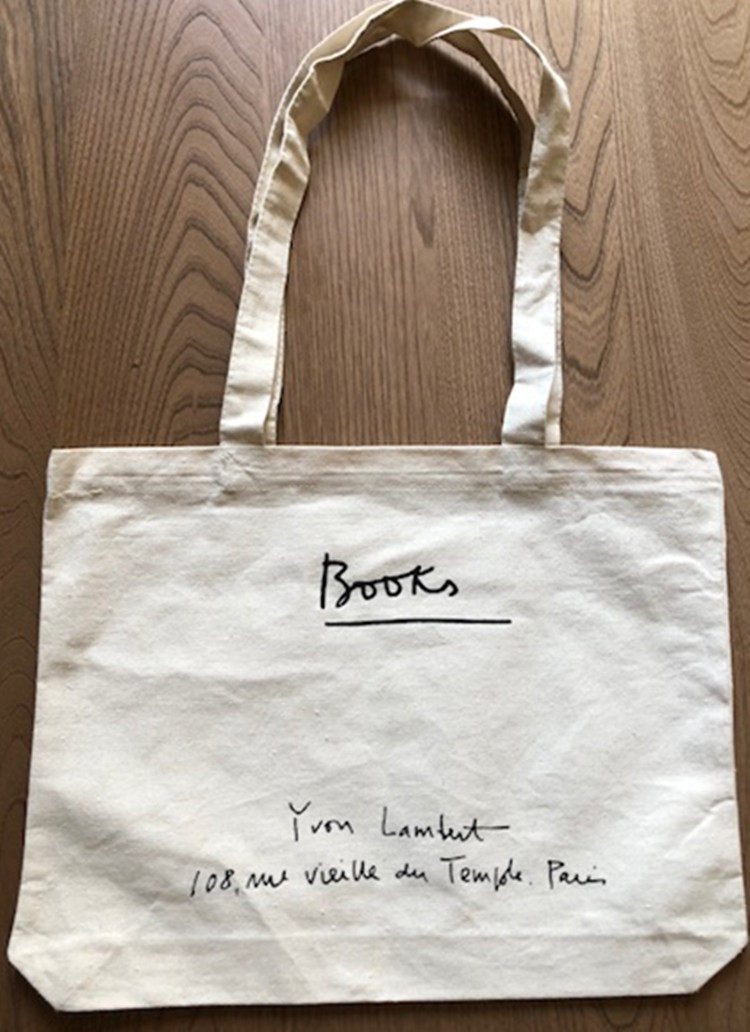 Books
Yvon Lambert
108, rue vieille du Temple. Paris